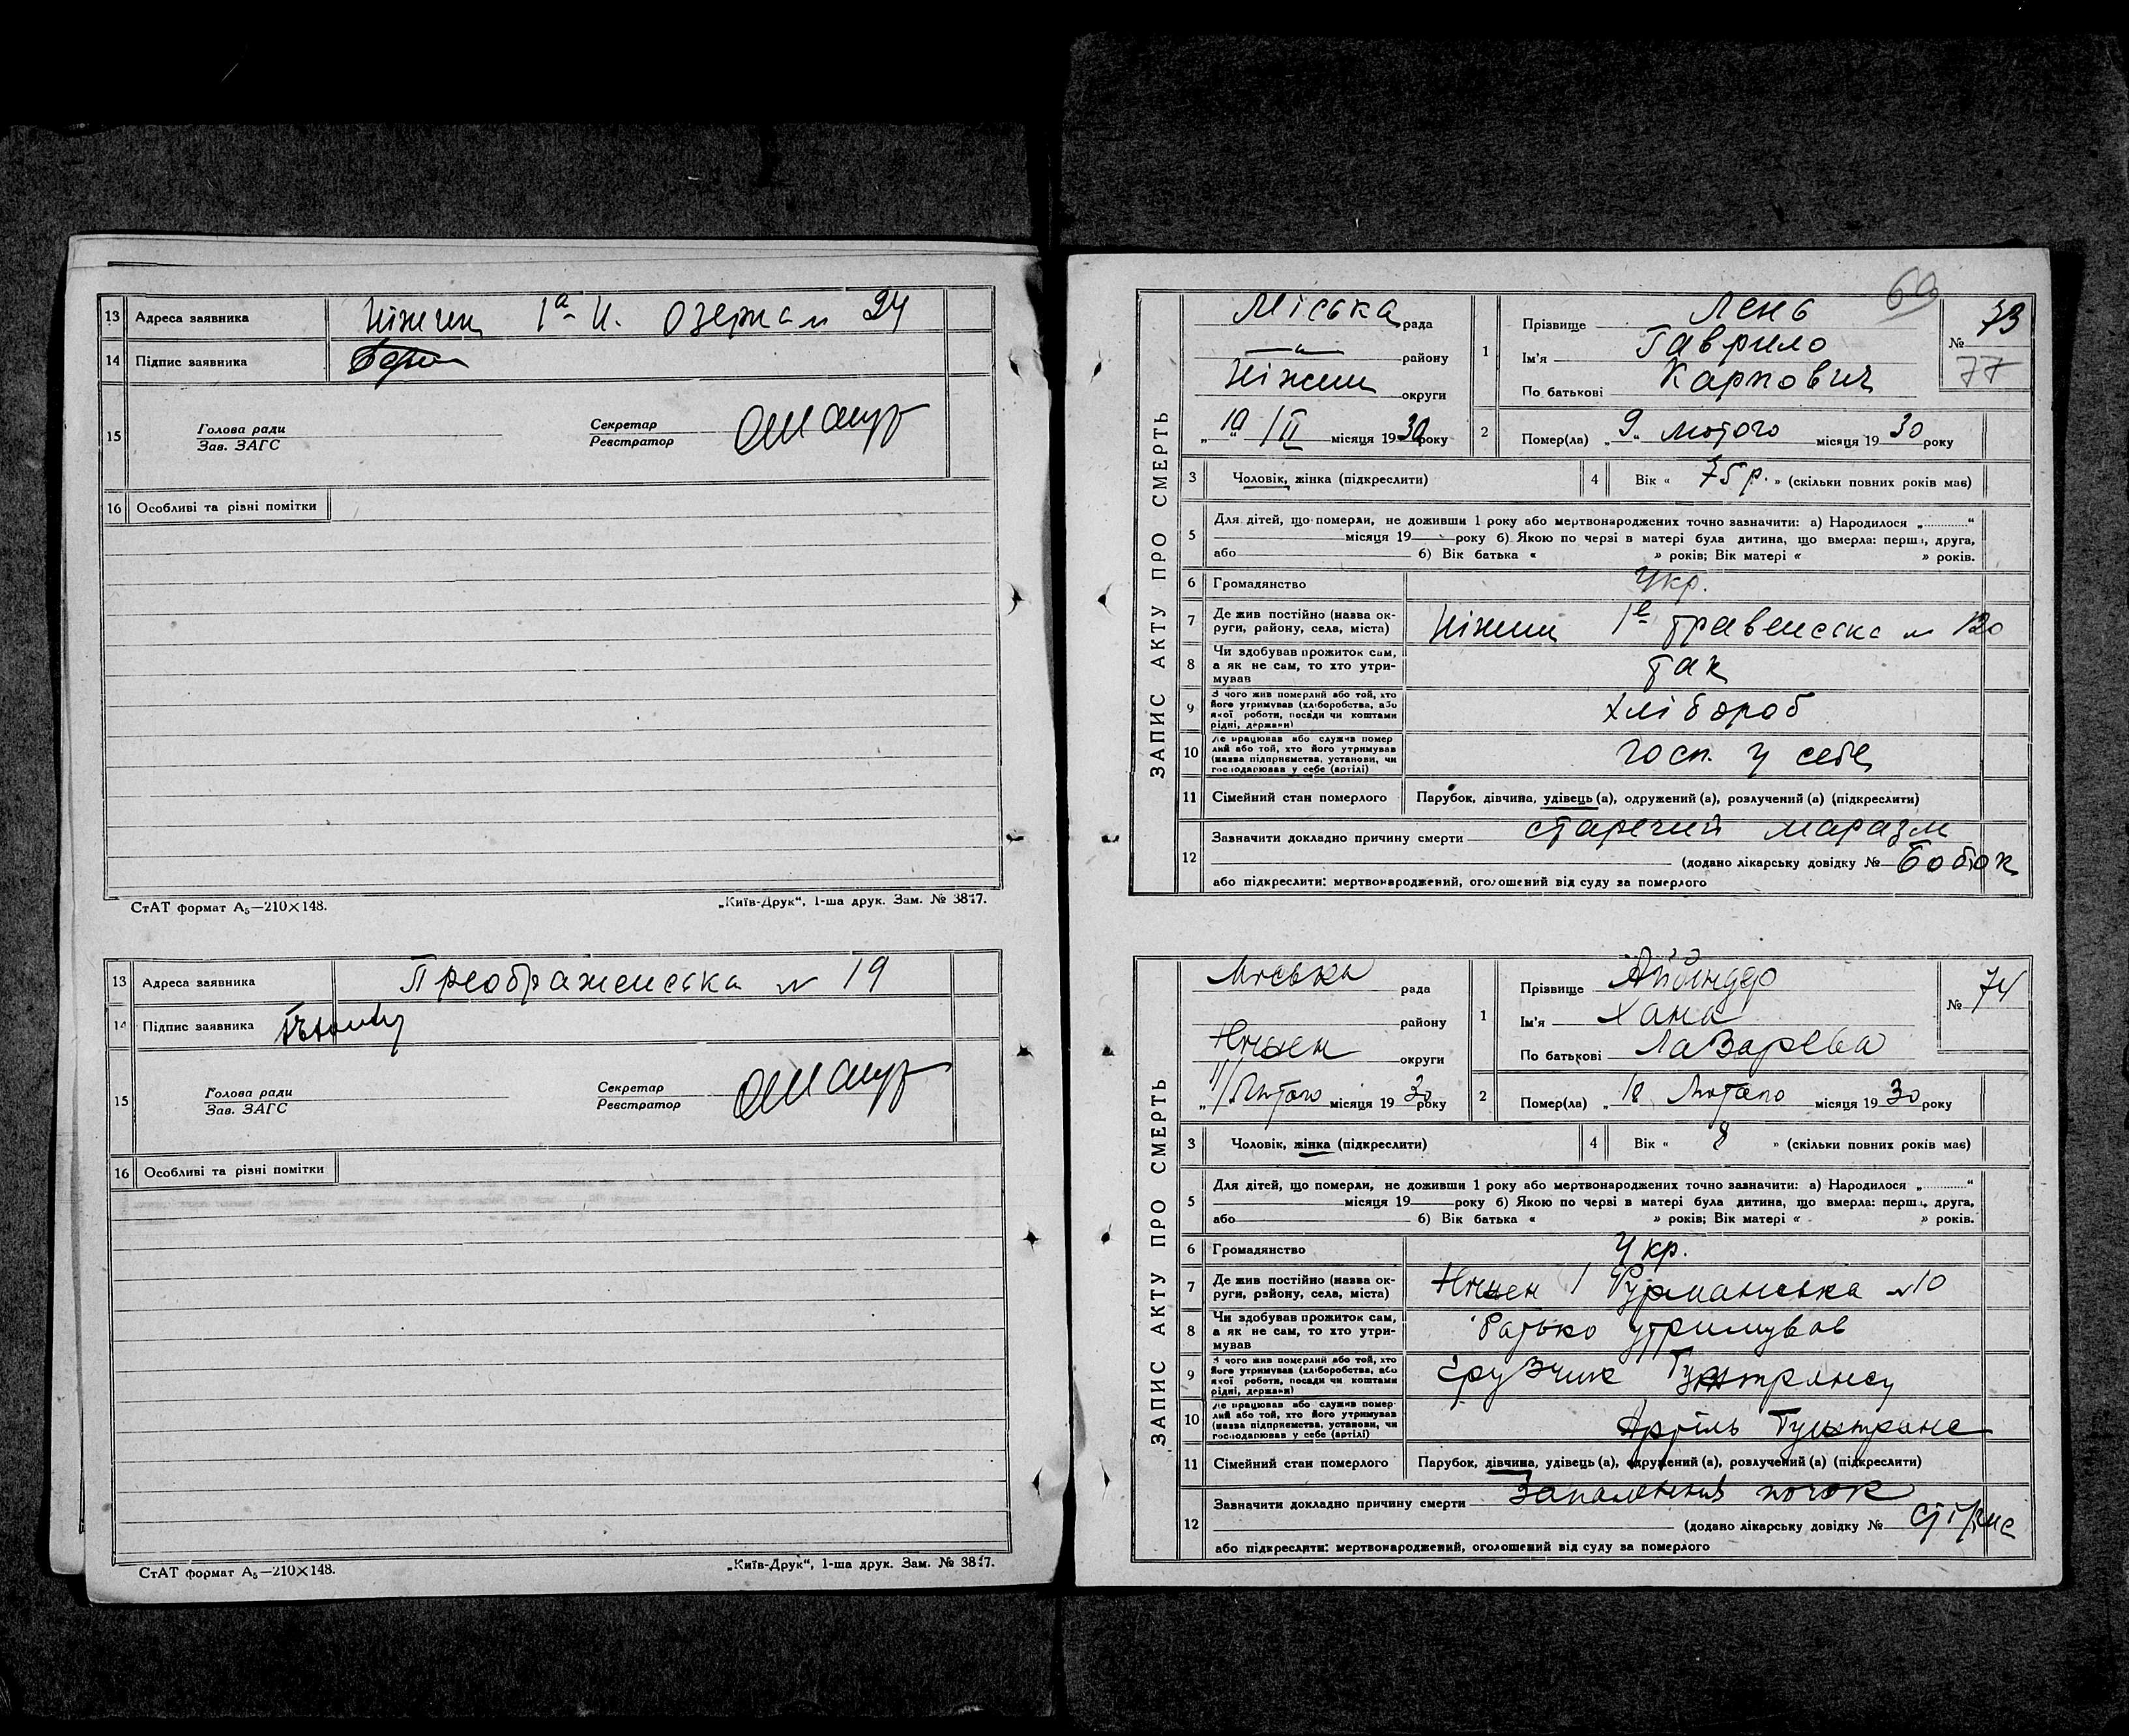 13 Адреса заявника Ніжин 1а Н. Озерна № 24
14 Підпис заявника
15 Голова ради
Зав. ЗАГС
Секретар
Реєстратор
16 Особливі та різні помітки
СтАТ формат А5—210×148.
„Київ-Друк“, 1-ша друк. Зам. № 3847.
13 Адреса заявника Преображенська № 19
14 Підпис заявника
15 Голова ради
Зав. ЗАГС
Секретар
Реєстратор
16 Особливі та різні помітки
СтАТ формат А5—210×148.
„Київ-Друк“, 1-ша друк. Зам. № 3847.
69
ЗАПИС АКТУ ПРО СМЕРТЬ
Міська рада
району
Ніжин округи
„10“ /II місяця 1930 року
1 Прізвище Лень
Ім'я Гаврило
По батькові Карпович
№ 73
77
2 Помер(ла) „9“ лютого місяця 1930 року
3 Чоловік, жінка (підкреслити)
4 Вік « 75 р. » (скільки повних років має)
5 Для дітей, що померли, не доживши 1 року або мертвонароджених точно зазначити: а) Народилося „............“
місяця 19 року б) Якою по черзі в матері була дитина, що вмерла: перша, друга,
або б) Вік батька « » років; Вік матері « » років.
6 Громадянство Укр.
7 Де жив постійно (назва ок-
руги, району, села, міста) Ніжин 1е Травенська № 120
8 Чи здобував прожиток сам,
а як не сам, то хто утри-
мував так
9 З чого жив померлий або той, хто
його утримував (хліборобства, або
якої роботи, посади чи коштами
рідні, держави) хлібороб
10 Де працював або служив помер-
лий або той, хто його утримував
(назва підприємства, установи, чи
господарював у себе (артілі) госп. у себе
11 Сімейний стан померлого Парубок, дівчина, удівець (а), одружений (а), розлучений (а) (підкреслити)
12 Зазначити докладно причину смерти старечий маразм
(додано лікарську довідку № Бобок
або підкреслити: мертвонароджений, оголошений від суду за померлого
ЗАПИС АКТУ ПРО СМЕРТЬ
Міська рада
району
Ніжен округи
„11/Лютого місяця 1930 року
1 Прізвище
Ім'я Хана
По батькові Лазарева
№ 74
2 Помер(ла) „10 Лютого місяця 1930 року
3 Чоловік, жінка (підкреслити)
4 Вік « 8 » (скільки повних років має)
5 Для дітей, що померли, не доживши 1 року або мертвонароджених точно зазначити: а) Народилося „............“
місяця 19 року б) Якою по черзі в матері була дитина, що вмерла: перша, друга,
або б) Вік батька « » років; Вік матері « » років.
6 Громадянство Укр.
7 Де жив постійно (назва ок-
руги, району, села, міста) Ніжен 1 № 10
8 Чи здобував прожиток сам,
а як не сам, то хто утри-
мував Батько утримував
9 З чого жив померлий або той, хто
його утримував (хліборобства, або
якої роботи, посади чи коштами
рідні, держави) грузчик Гужтрансу
10 Де працював або служив помер-
лий або той, хто його утримував
(назва підприємства, установи, чи
господарював у себе (артілі) Артіль Гужтранс
11 Сімейний стан померлого Парубок, дівчина, удівець (а), одружений (а), розлучений (а) (підкреслити)
12 Зазначити докладно причину смерти Запаления почок
(додано лікарську довідку №
або підкреслити: мертвонароджений, оголошений від суду за померлого